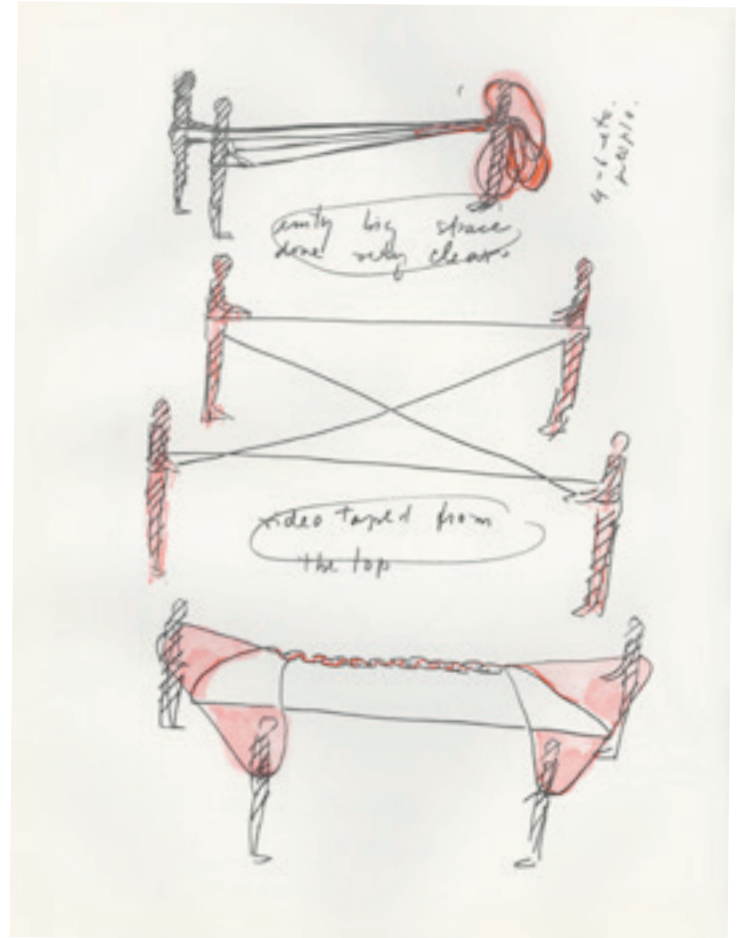 4-6 people.
emty big space
done very clear.
video taped from
the top